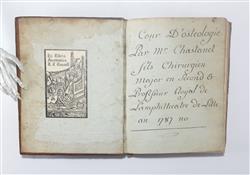 Ex Libris
Cour D'osteologie
Par Mr. Chastanet
fils Chirurgien
Major en Second &
Professeur Royal de
Lamphitheatre de Lille
an 1787